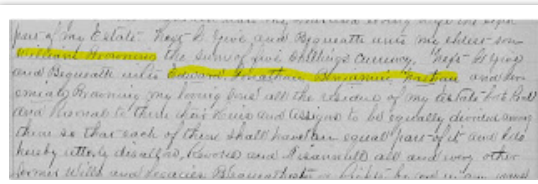 part of my Estate. Next I Give and Bequeath unto my eldest son
William Browning the sum of five shillings currency. Next I give
and Bequeath unto Edward Jonathan Nathan and
Browning my loving sons all the residue of my Estate both Real
and Personal to them their Heirs and assigns to be equally divided among
them so that each of them shall have an equal part of it and I do
hereby utterly disallow, Revoke and Disannull all and every other
former Wills and Legacies Bequeathed